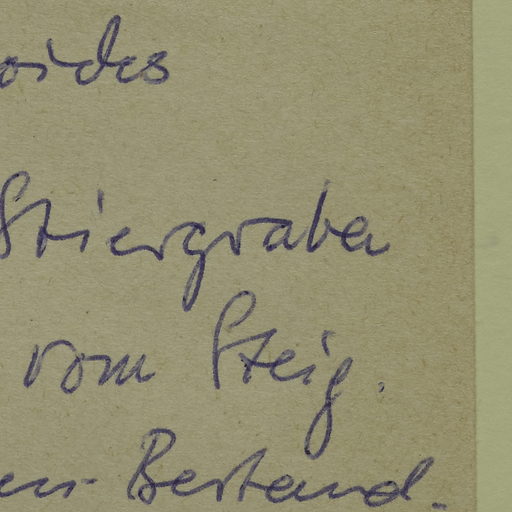 oides
Stiergraben
vom Steig.
en-Bestand.